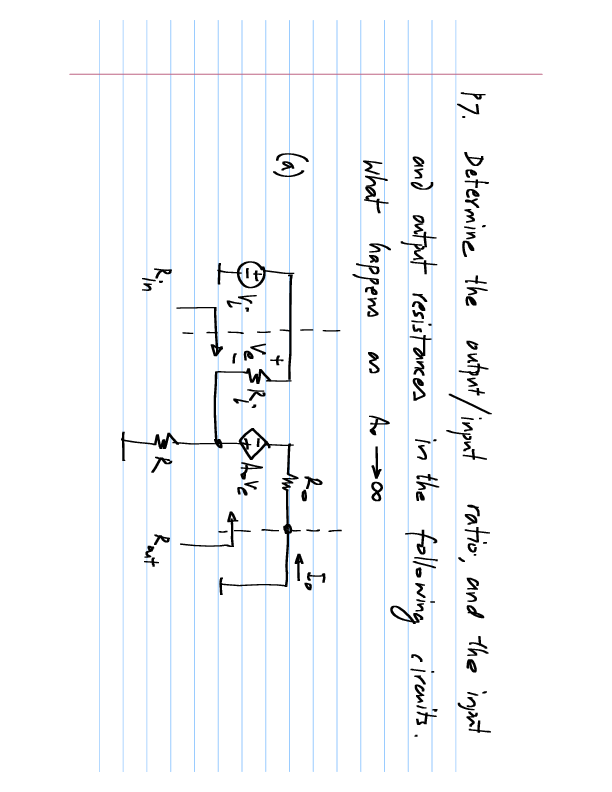 P7. Determine the output/input ratio, and the input
and output resistances in the following circuits.
What happens as A₀ → ∞
(a)
I₀
R₀
+
Vᵢ
+
−
Vₑ
−
Rᵢ
−
+
A₀Vₑ
R
Rin
Rout